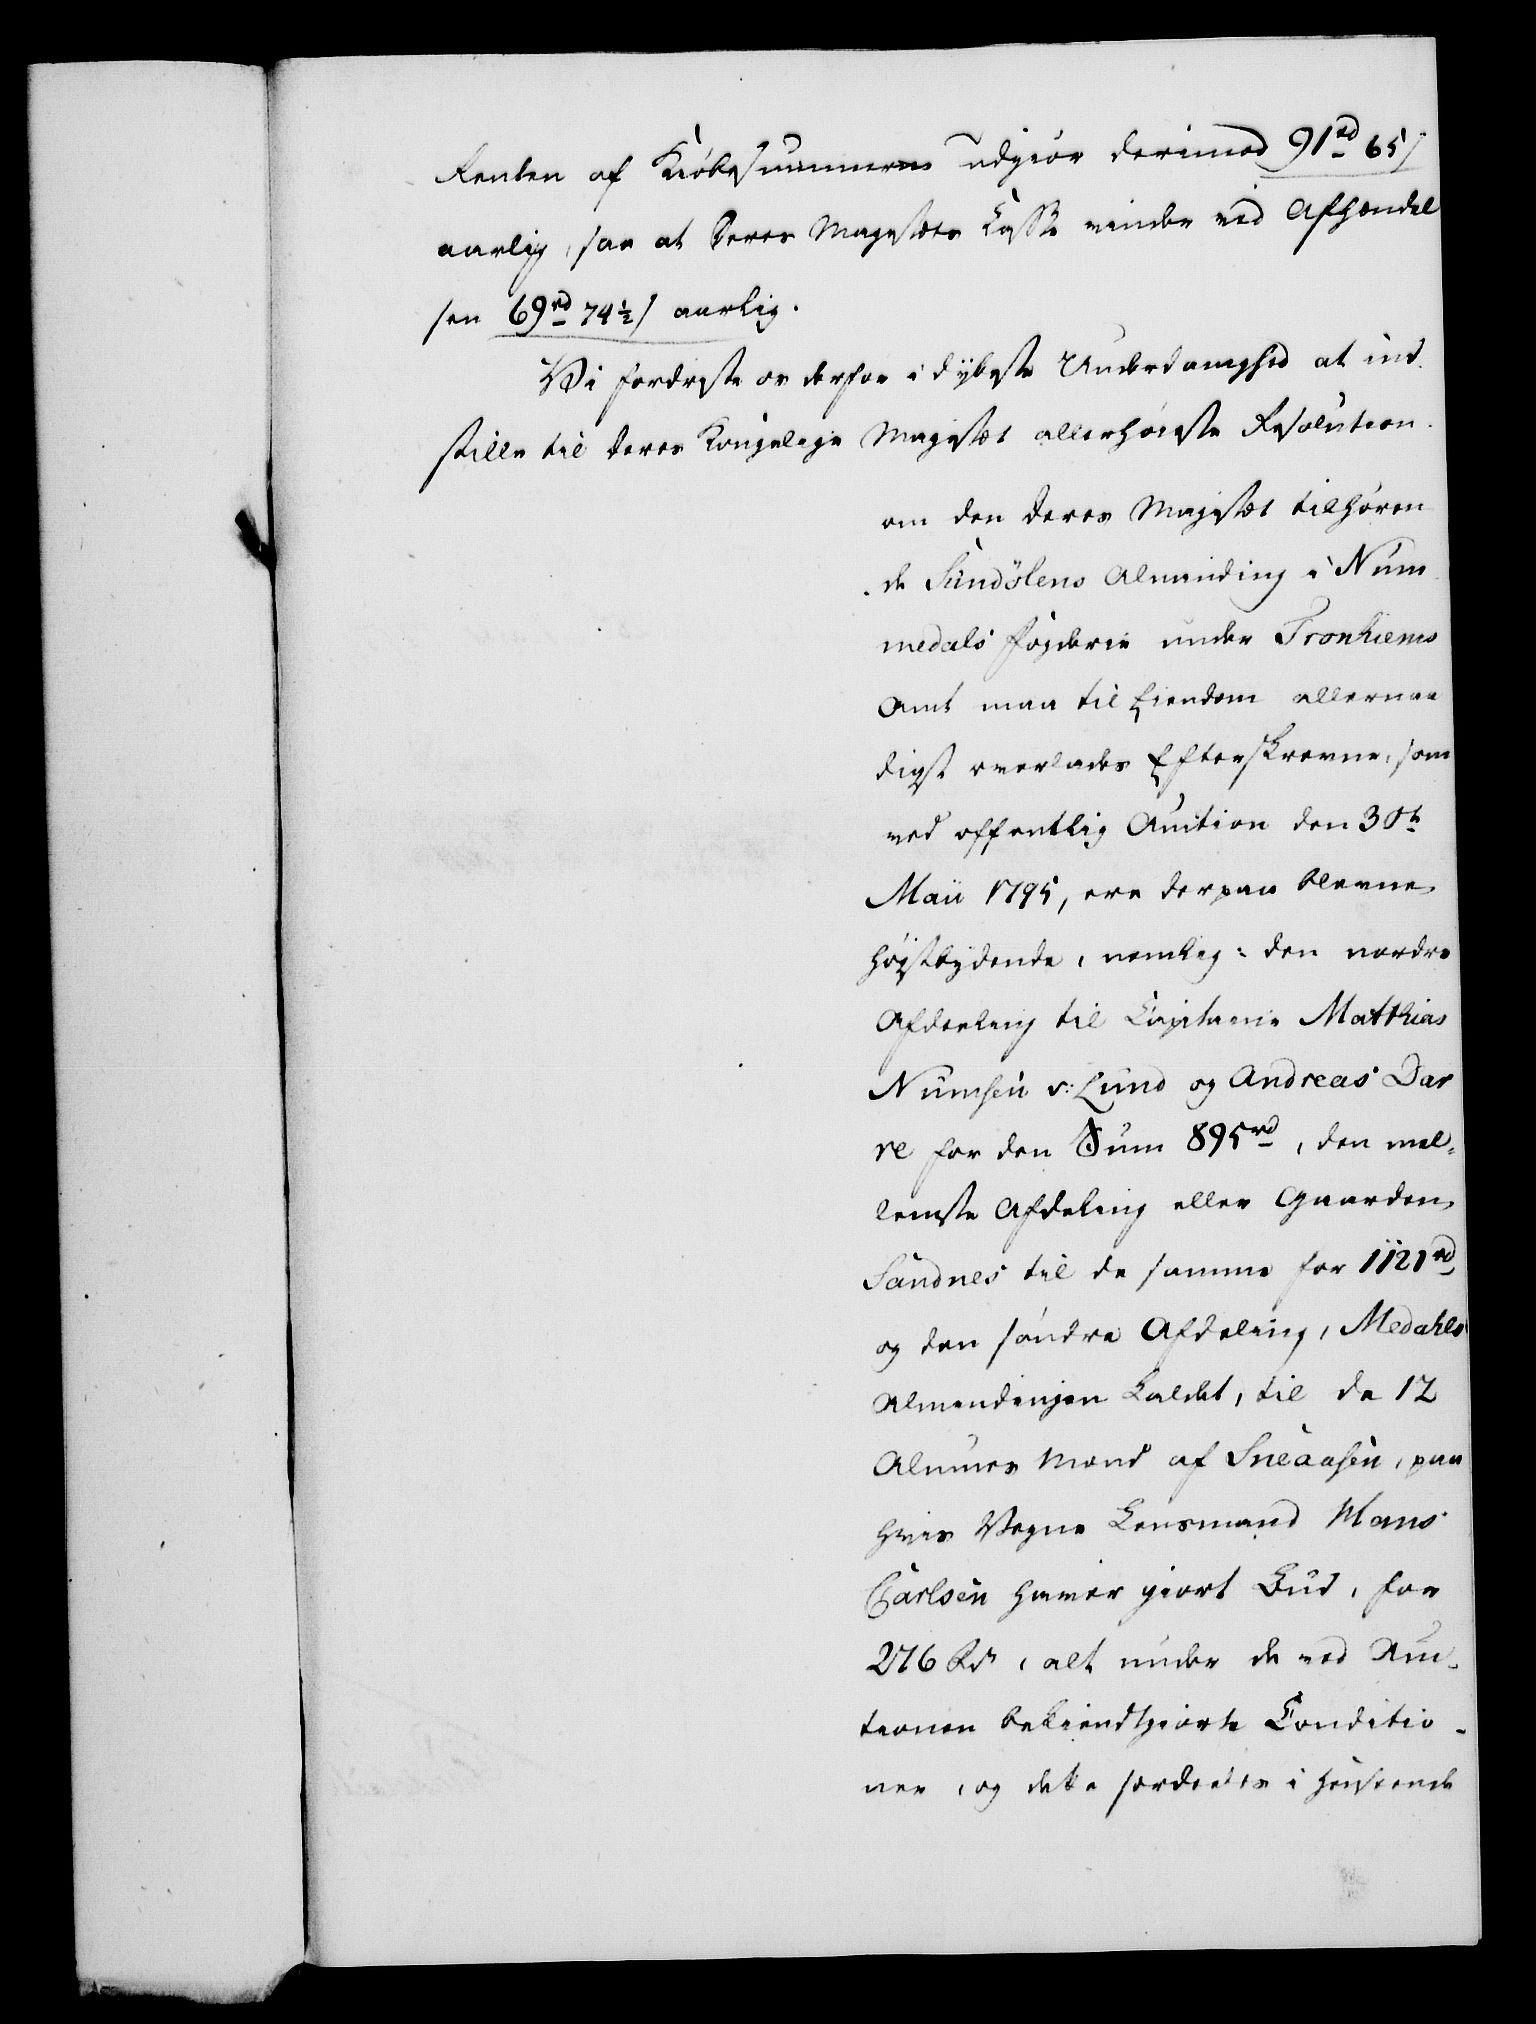 Renten af Kiøbesummerne udgiør derimod 91rd 65s
aarlig, saa at Deres Majestæts Casse vinder ved Afhændel
sen 69rd 74½s aarlig.
Vi fordriste os derfor i dybeste Underdanighed at ind
stille til Deres Kongelige Majestæt allerhøieste Resolution.
om den Deres Majestæt tilhøren
de Sündölens Alminding i Num
medals Fogderie under Tronhiems
Amt maa til Eiendom allernaa
digst overlades Efterskrevne, som
ved offentlig Auction den 30te
Maii 1795, ere derpaa blevne
høistbydende, nemlig: den nordre
Afdeeling til Capitaine Matthias
Numsen v: Lund og Andreas Dar
re for den Sum 895rd, den mel-
lemste Afdeling eller Gaarden
Sandnes til de samme for 1121rd,
og den søndre Afdeling, Medahls
Almendingen kaldet, til de 12
Almues Mænd af Sneaasen, paa
hvis Vegne Lensmand Mons
Carlsen haver giort Bud, for
276 Rd, alt under de ved Auc-
tionen bekiendtgiorte Conditio-
ner, og dette særdeeles i Henseende